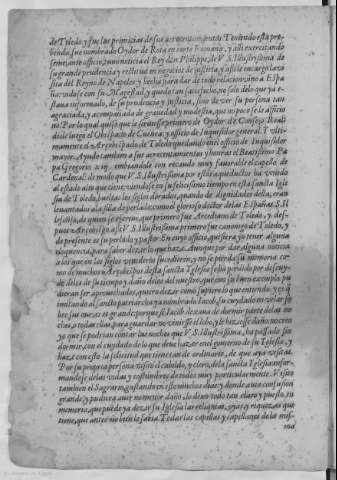 de Toledo, y fue las primicias de sus acrecentamientos Teniendo esta pre
benda, fue nombrado Oydor de Rota en corte Romana, y alli exercitando
semejante officio, tuuo noticia el Rey don Philippe, de V. S. Illustrissima de
su grande prudencia y rectitud en negocios de justicia, y assi le encargo la vi
sita del Reyno de Napoles y hecha para dar de todo relacion vino a Espa
ña: vido se con su Magestad, y quedo tan satisfecho, no solo de lo que ya e-
staua informado, de su prudencia y justicia, sino de ver su persona tan
agraciada, y acompañada de grauedad y modestia, que
Por lo qual quiso que le siruiesse primero de Oydor de Consejo Real,
diole luego el Obispado de Cuenca: y officio de Inquisidor general. Y vlti-
mamente el Arçobispado de Toledo quedando en el officio de Inquisidor
mayor. Ayudo tambien a sus acrecentamientos y honras el Beatissimo Pa
pa Gregorio embiandole con recaudo muy fauorable el capelo de
Cardenal: de modo que V. S. Illustrissima por estos aqueductos ha venido
al estado alto que tiene, viendo se en su felicissimo tiempo en esta sancta Igle
sia de Toledo, que los siglos dorados, quando de dignidades della, eran
leuantados a la silla de perlados como el glorioso doctor de las Españas S. Il
lefonso, de quien se escriue, que primero fue Arcediano de Toledo, y des-
pues Arçobispo, assi V. S. Illustrissima primero fue canonigo de Toledo, y
de presente es su perlado y pastor. En cuyo officio, quisiera yo tener alguna
eloquencia, para saber dezir lo que haze. Aunque por dar alguna noticia
a los que en los siglos venideros succedieren, y no se pierda su memoria co-
mo de muchos Arçobispos desta sancta Iglesia se han perdido por descuy-
do dellos de su tiempo y daño dellos del nuestro, que con su buen exemplo pu
dieran ser aprouechados, quiero dezir como supiere lo que entiendo, y es q̃
imitando al sancto patriarcha ya nombrado Iacob, su cuydado en velar so
bre sus ouejas es grande, porque si Iacob dexaua de dormir parte de las no
ches, o todas ellas, para guardar no viniesse el lobo y le hiziesse daño, no creo
yo que se podrian contar las noches que V. S. Illustrissima, ha passado sin
dormir, con el cuydado de lo que deue hazer en el gouierno de su Iglesia, y
haza con esto la solicitud que tiene tan de ordinario, de que aya visitas.
Por su propria persona visito el cabildo, y clero, dela sancta Iglesia, enfor
mandose de las vidas y costumbres de todos muy particularmente. Visito
tambien el Sagrario, gastando en esto muchos dias: y donde auia confusion
grande y pudiera auer no menor daño, lo dexo todo tan claro y puesto, en
memoria, que puede ya dezir su Iglesia las reliquias, joyas y riquezas que
tiene, que antes no bien lo sabia. Todas las capillas y capellanes de la mis-
ma